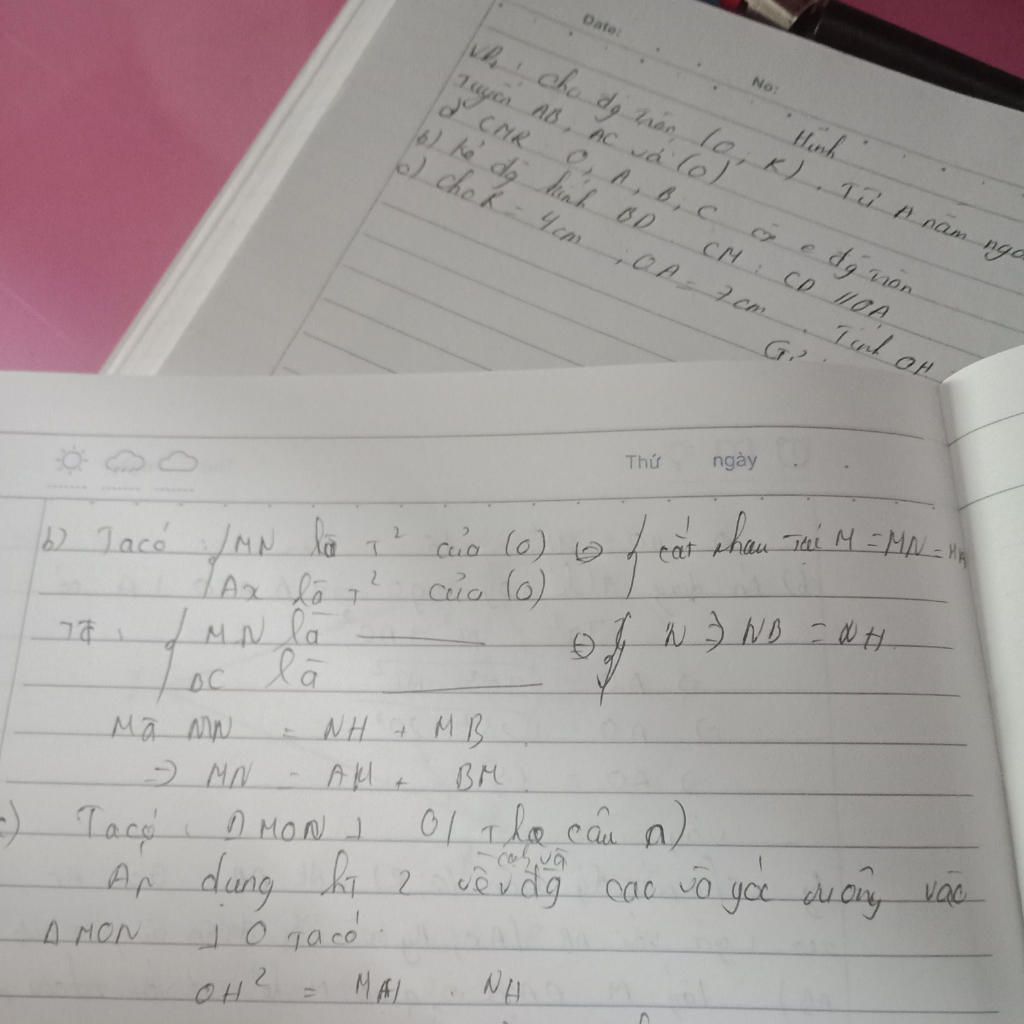 Date:
No:
Hình
VD₁: Cho đg tròn (O; R). Từ A nằm ngo
tuyến AB, AC và (O)
a) CMR O, A, B, C đg tròn
b) Kẻ đg kính BD CM: CD // OA
c) Cho R = 4cm, OA = 7cm. Tính OH
G?
Thứ ngày
b) Ta có: MN là T² của (O) cắt nhau tại M = MN =
Ax là T² của (O)
TT: MN là N => NB = NH
BC là
Mà MN = NH + MB
=> MN = AM + BM
c) Ta có: Δ MON ⊥ O ( câu a)
cạh và
Áp dụng ht 2 về đg cao và góc vuông vào
Δ MON ⊥ O ta có:
OH² = MH . NH